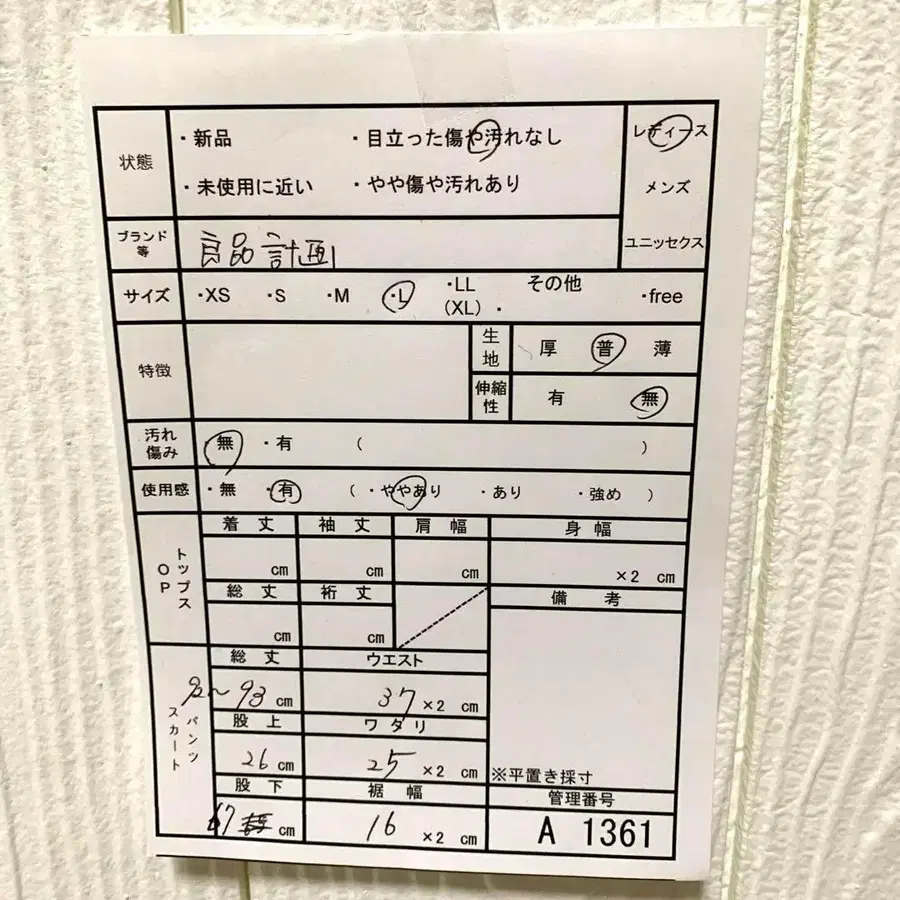 状態 ・新品 ・目立った傷や汚れなし レディース
・未使用に近い ・やや傷や汚れあり メンズ
ブランド等 良品計画 ユニセックス
サイズ ・XS ・S ・M ・L ・LL(XL) ・その他 ・free
特徴 生地 厚 普 薄
伸縮性 有 無
汚れ傷み ・無 ・有 ( )
使用感 ・無 ・有 ( ・ややあり ・あり ・強め )
トップス OP 着丈 袖丈 肩幅 身幅
cm cm cm ×2 cm
総丈 裄丈 備考
cm cm
パンツ スカート 総丈 ウエスト
92~93 cm 37 ×2 cm
股上 ワタリ
26 cm 25 ×2 cm ※平置き採寸
股下 裾幅 管理番号
67 cm 16 ×2 cm A 1361